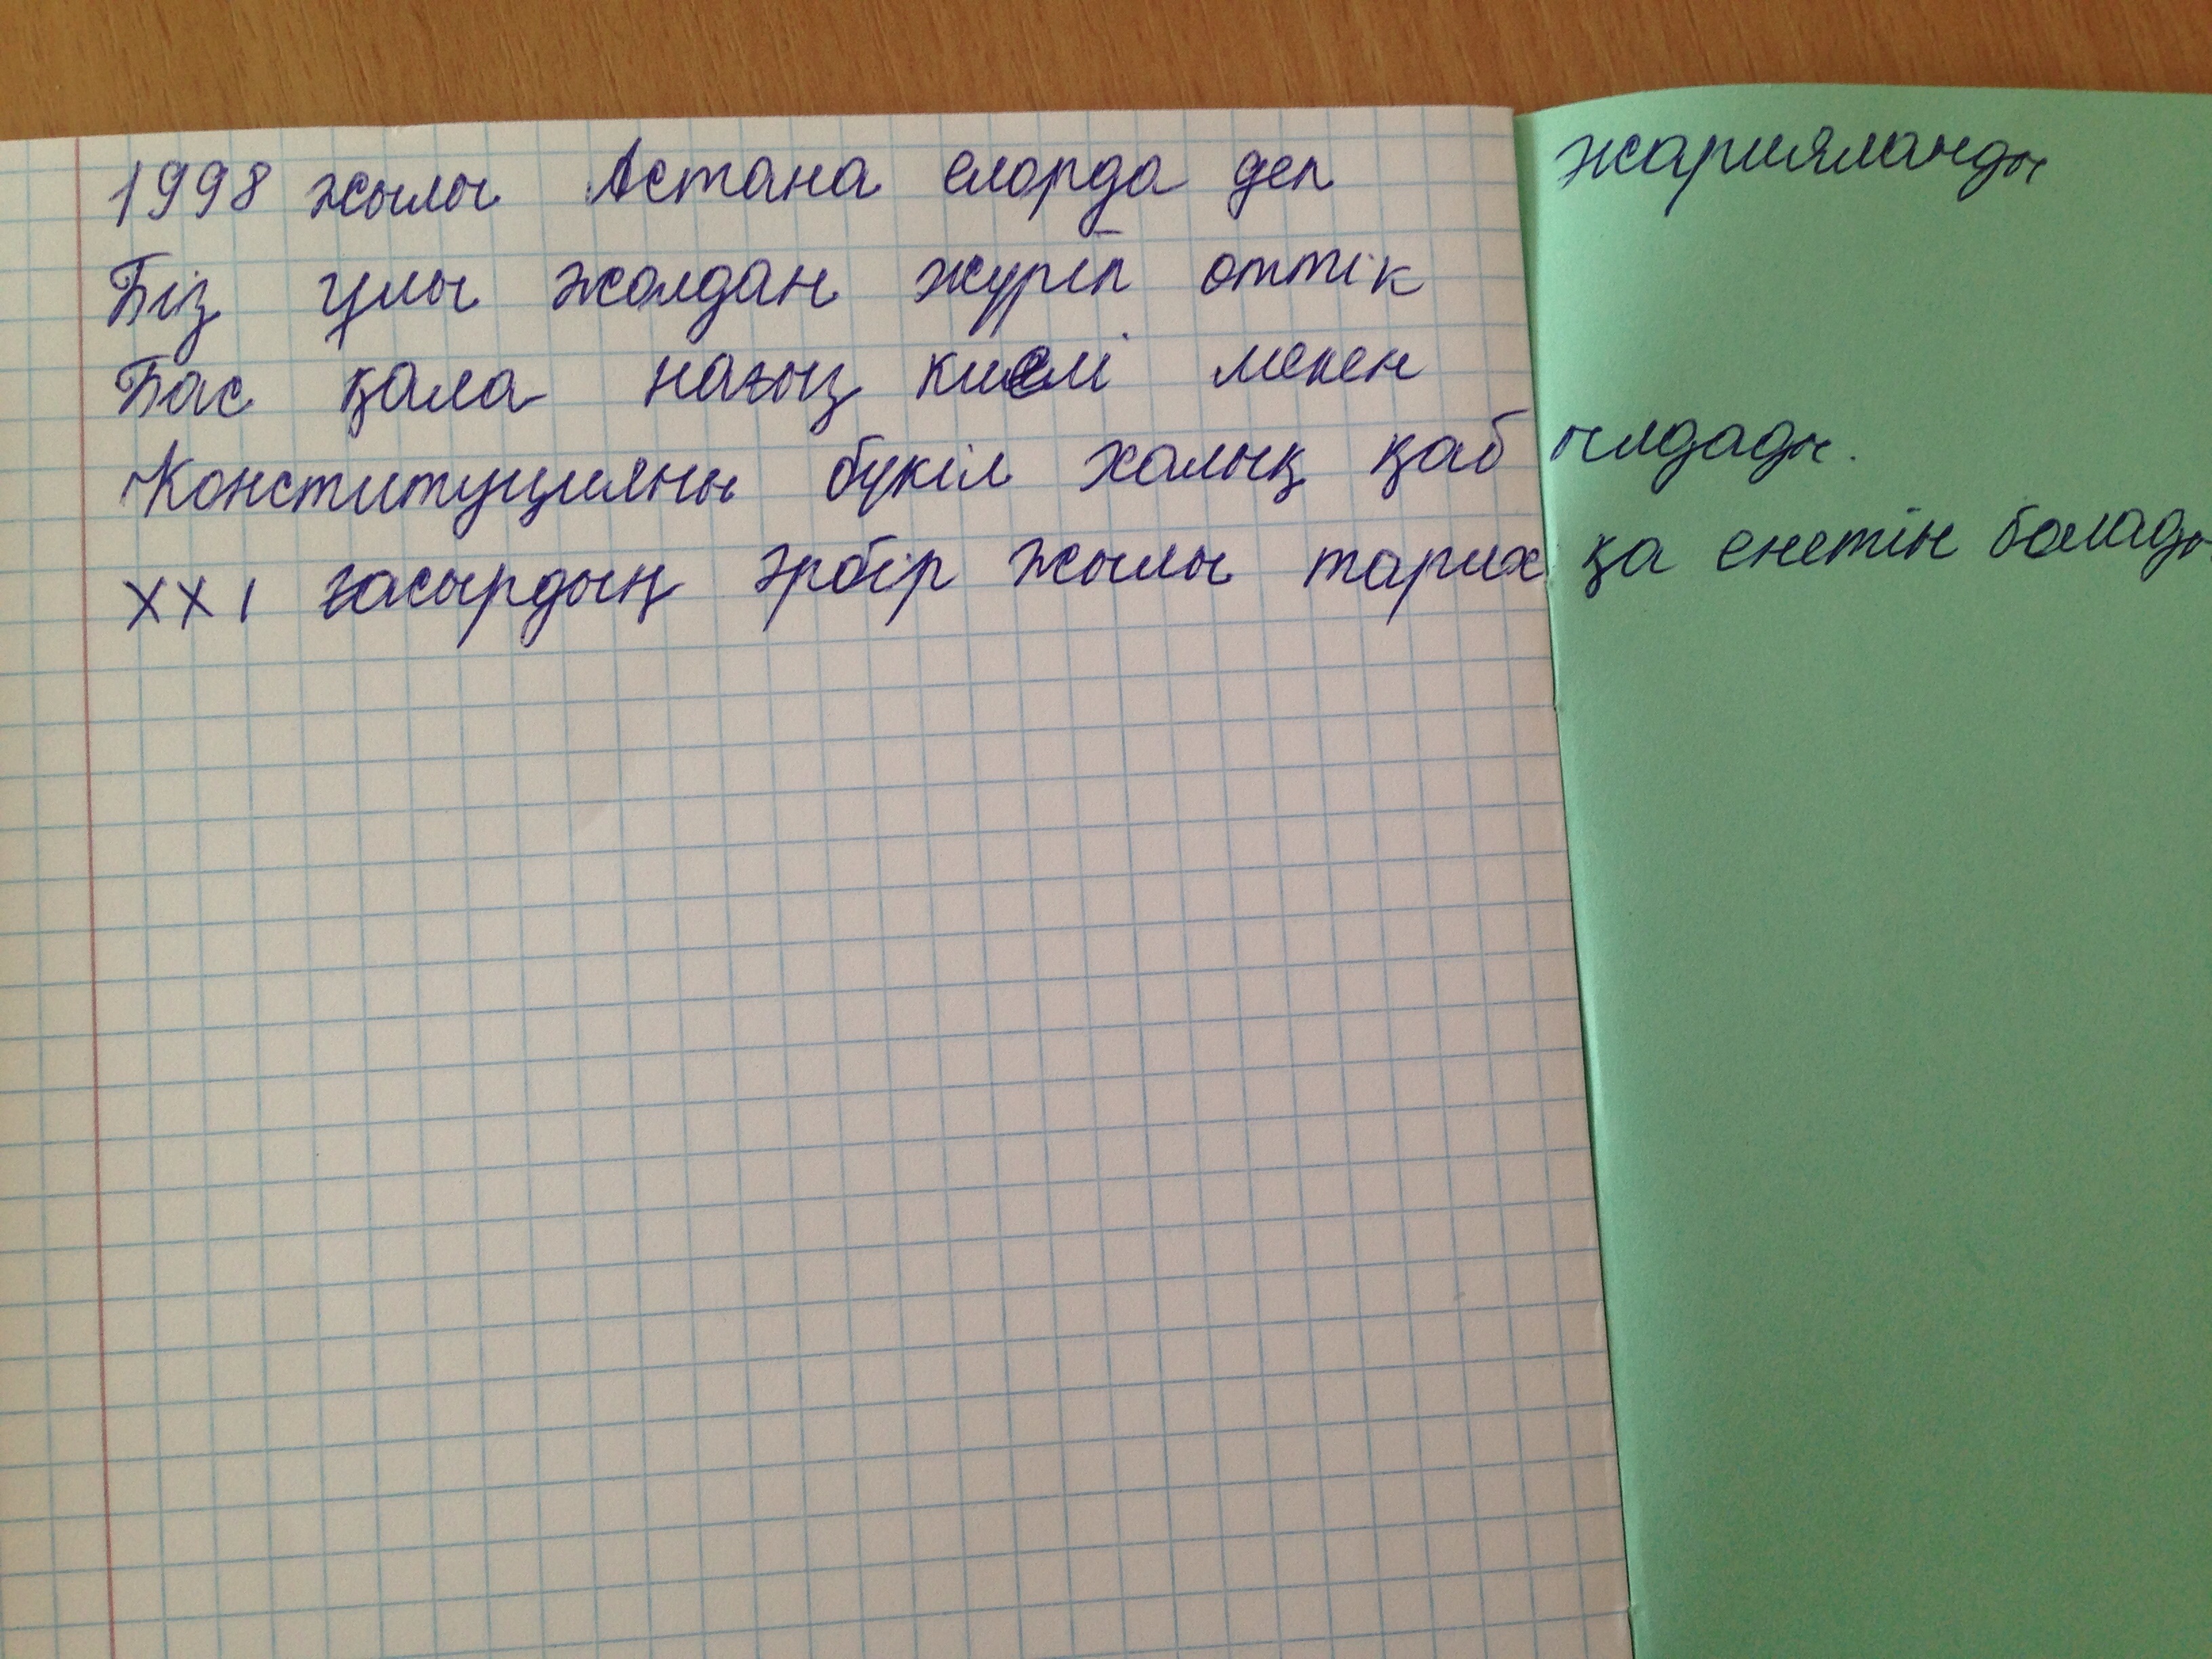 1998 жылы Астана елорда деп жарияланды
Біз ұлы жолдан жүріп өттік
Бас қала нағыз киелі мекен
Конституцияны бүкіл халық қабылдады.
XXI ғасырдың әрбір жылы тарихқа енетін болады